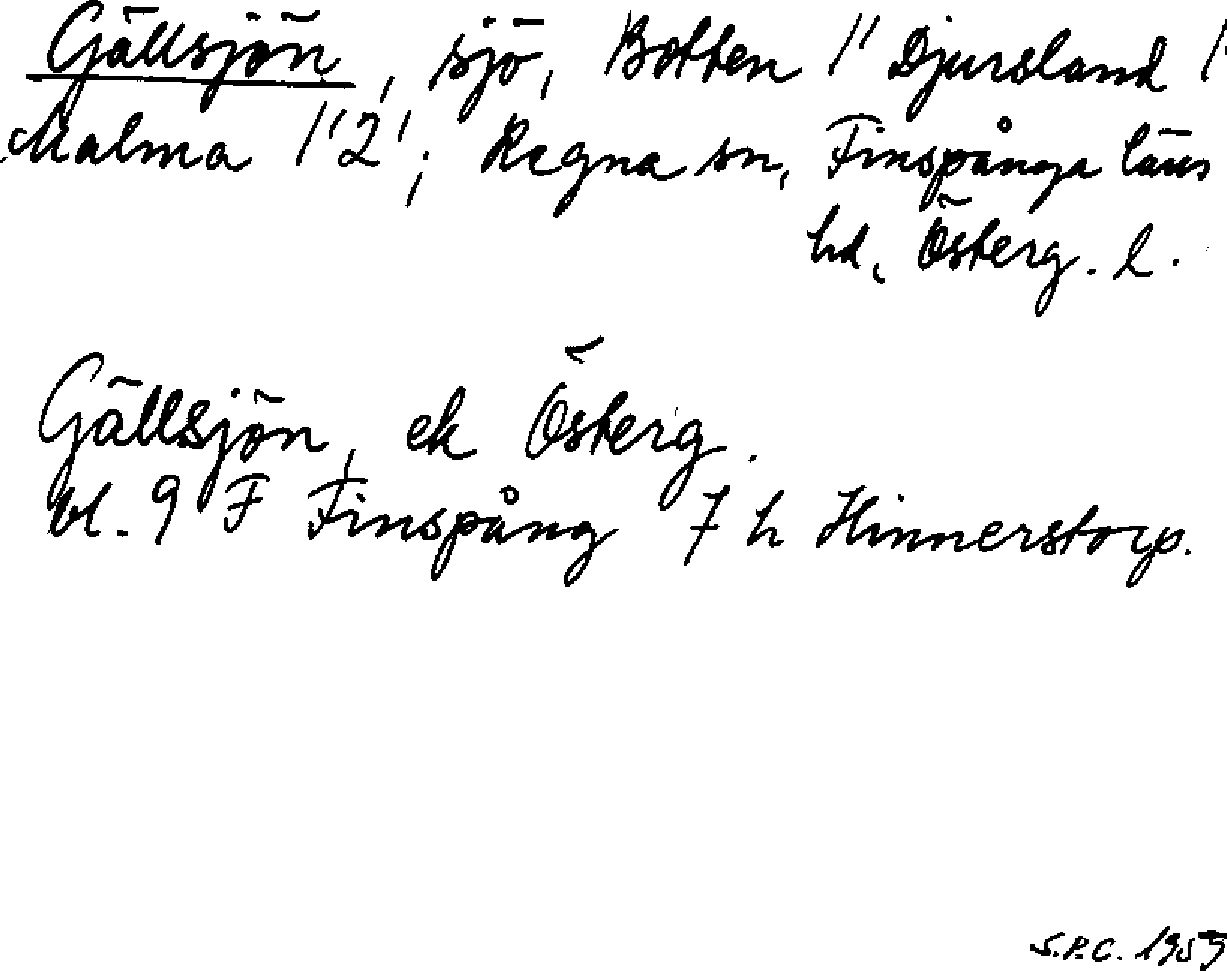 Gällsjön, sjö, Botten 1' Djursland 1'
Malma 1'2'; Regna sn, Finspånga läns
hd, Österg. l.
Gällsjön, ek Österg.
bl. 9 F Finspång 7 h Hinnerstorp.
S.P.C. 1959